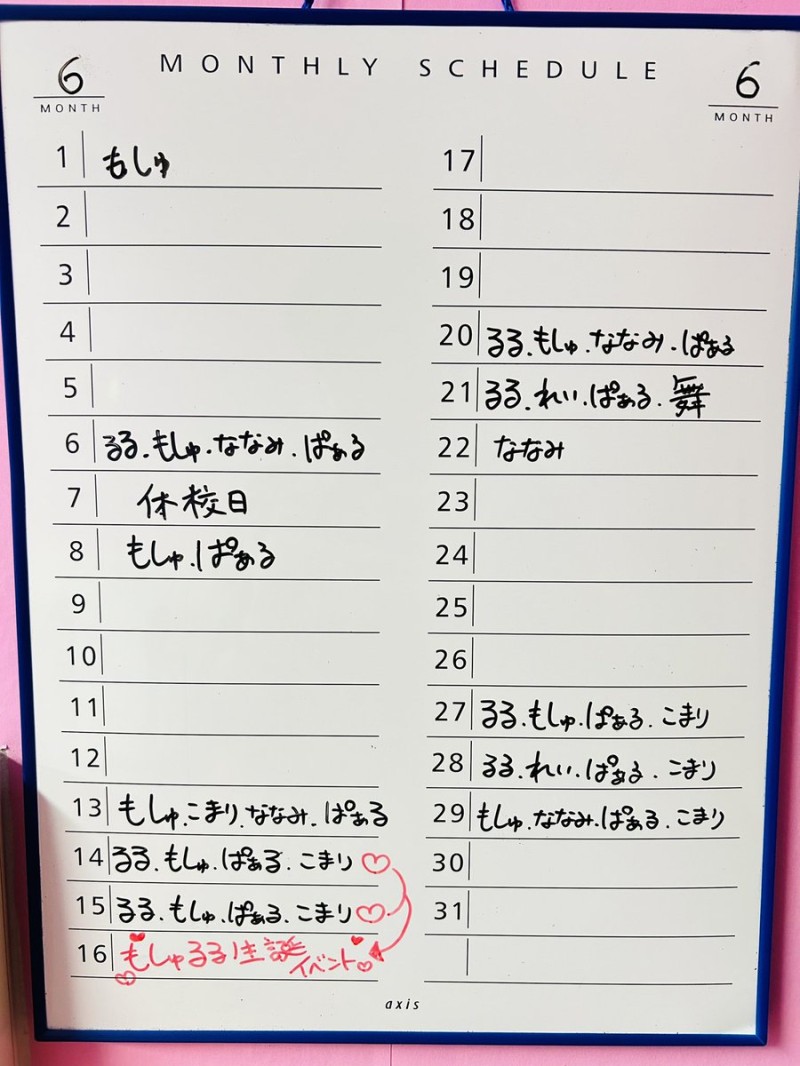 MONTHLY SCHEDULE
6
MONTH
6
MONTH
1 もしゅ
2
3
4
5
6 るる.もしゅ.ななみ.ぱぁる
7 休校日
8 もしゅ.ぱぁる
9
10
11
12
13 もしゅ.こまり.ななみ.ぱぁる
14 るる.もしゅ.ぱぁる.こまり♡
15 るる.もしゅ.ぱぁる.こまり♡
16 もしゅるる生誕イベント♡
17
18
19
20 るる.もしゅ.ななみ.ぱぁる
21 るる.れい.ぱぁる.舞
22 ななみ
23
24
25
26
27 るる.もしゅ.ぱぁる.こまり
28 るる.れい.ぱぁる.こまり
29 もしゅ.ななみ.ぱぁる.こまり
30
31
axis